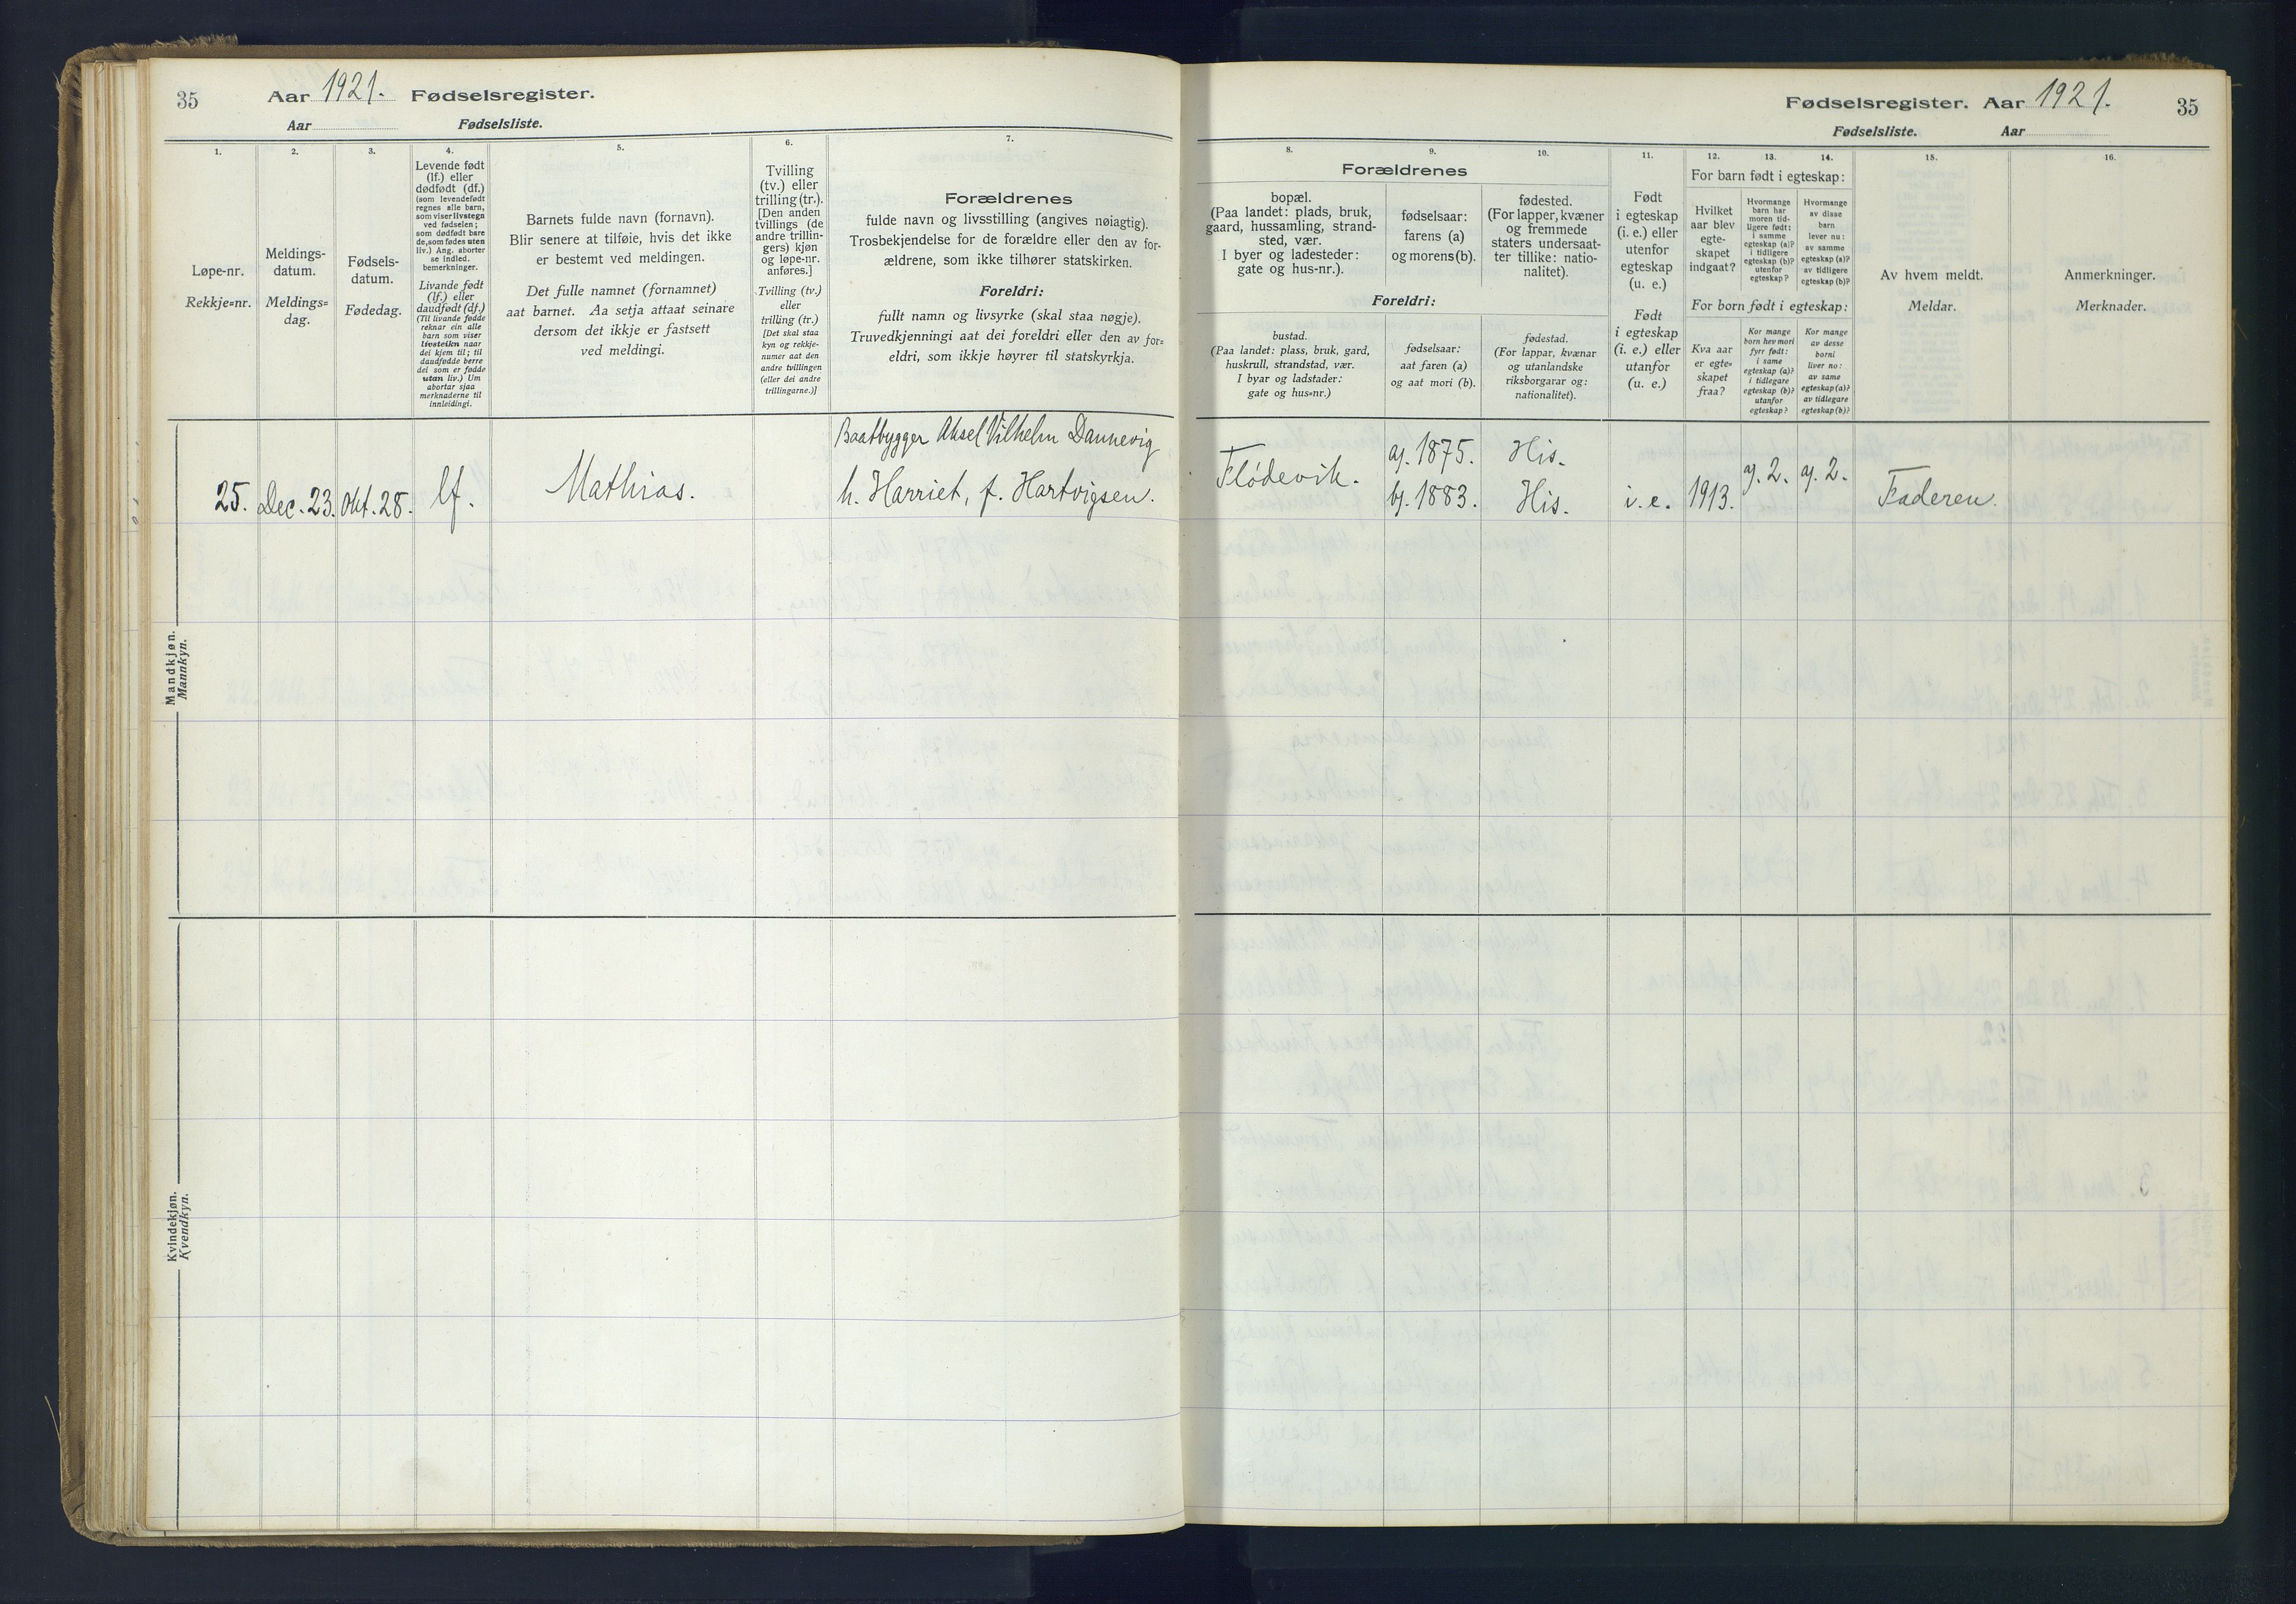 35
Aar 1921. Fødselsregister.
Aar Fødselsliste.
1.
2.
3.
4.
5.
6.
7.
Løpe-nr.
Rekkje=nr.
Meldings-
datum.
Meldings=
dag.
Fødsels-
datum.
Fødedag.
Levende født
(lf.) eller
dødfødt (df.)
(som levendefødt
regnes alle barn,
som viser livstegn
ved fødselen;
som dødfødt bare
de, som fødes uten
liv.) Ang. aborter
se indled.
bemerkninger.
Livande født
(lf.) eller
daudfødt (df.)
(Til livande fødde
reknar ein alle
barn som viser
livsteikn naar
dei kjem til; til
daudfødde berre
dei som er fødde
utan liv.) Um
abortar sjaa
merknaderne til
innleidingi.
Barnets fulde navn (fornavn).
Blir senere at tilføie, hvis det ikke
er bestemt ved meldingen.
Det fulle namnet (fornamnet)
aat barnet. Aa setja attaat seinare
dersom det ikkje er fastsett
ved meldingi.
Tvilling
(tv.) eller
trilling (tr.).
[Den anden
tvillings (de
andre trillin-
gers) kjøn
og løpe-nr.
anføres.]
Tvilling (tv.)
eller
trilling (tr.)
[Det skal staa
kyn og rekkje-
numer aat den
andre tvillingen
(eller dei andre
trillingarne.)]
Forældrenes
fulde navn og livsstilling (angives nøiagtig).
Trosbekjendelse for de forældre eller den av for-
ældrene, som ikke tilhører statskirken.
Foreldri:
fullt namn og livsyrke (skal staa nøgje).
Truvedkjenningi aat dei foreldri eller den av for=
eldri, som ikkje høyrer til statskyrkja.
Mandkjøn.
Mannkyn.
Baatbygger Aksel Vilhelm Dannevig
25. Dec. 23. Okt. 28. lf. Mathias. h. Harriet, f. Hartvigsen.
Kvindekjøn.
Kvendkyn.
Fødselsregister. Aar 1921. 35
Fødselsliste. Aar
8.
9.
10.
11.
12.
13.
14.
15.
16.
Forældrenes
bopæl.
(Paa landet: plads, bruk,
gaard, hussamling, strand-
sted, vær.
I byer og ladesteder:
gate og hus-nr.).
fødselsaar:
farens (a)
og morens (b).
fødested.
(For lapper, kvæner
og fremmede
staters undersaat-
ter tillike: natio-
nalitet).
Foreldri:
bustad.
(Paa landet: plass, bruk, gard,
huskrull, strandstad, vær.
I byar og ladstader:
gate og hus=nr.)
fødselsaar:
aat faren (a)
og aat mori (b).
fødestad.
(For lappar, kvænar
og utanlandske
riksborgarar og:
nationalitet).
Født
i egteskap
(i. e.) eller
utenfor
egteskap
(u. e.)
Født
i egteskap
(i. e.) eller
utanfor
(u. e.)
For barn født i egteskap:
Hvilket
aar blev
egte-
skapet
indgaat?
Hvormange
barn har
moren tid-
ligere født:
i samme
egteskap (a)?
i tidligere
egteskap (b)?
utenfor
egteskap?
Hvormange
av disse
barn
lever nu:
av samme
egteskap (a)?
av tidligere
egteskap (b)?
For born født i egteskap:
Kva aar
er egte=
skapet
fraa?
Kor mange
born hev mori
fyrr født:
i same
egteskap (a)?
i tidlegare
egteskap (b)?
utanfor
egteskap?
Kor mange
av desse
borni
liver no:
av same
egteskap (a)?
av tidlegare
egteskap (b)?
Av hvem meldt.
Meldar.
Anmerkninger.
Merknader.
a). 1875. His.
Flødevik. a). 2. a). 2.
b). 1883. His. i. e. 1913. Faderen.